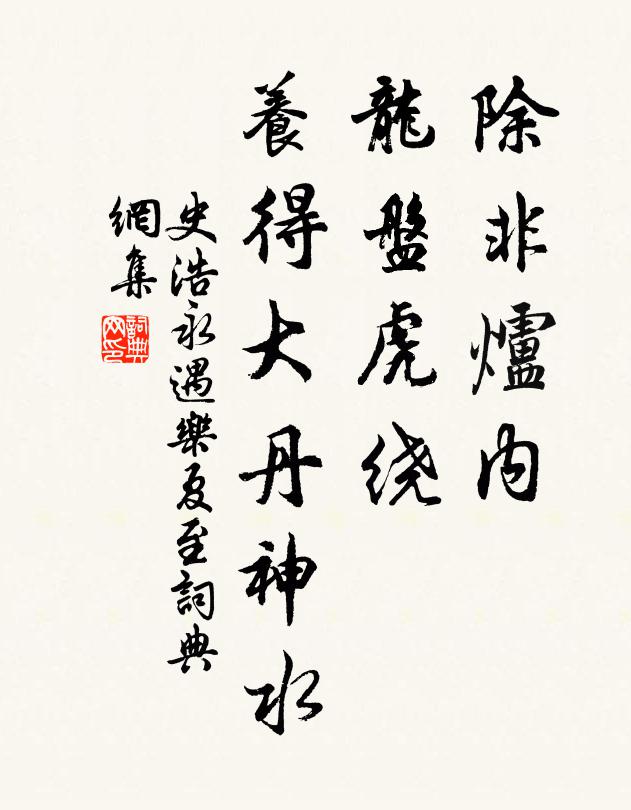 除非爐内
龍盤虎绕
養得大丹神水
史浩永遇樂夏至詞典
網集
詞典
网印